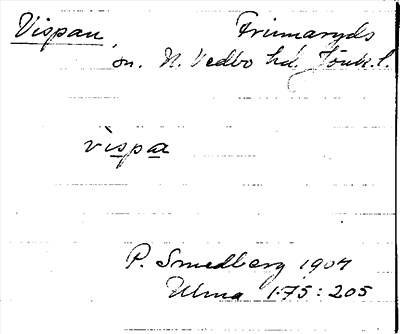 Vispan, Frinnaryds
sn. N. Vedbo hd. Jönk. l.
vispa
P. Smedberg 1907
Ulma 1:75 : 205